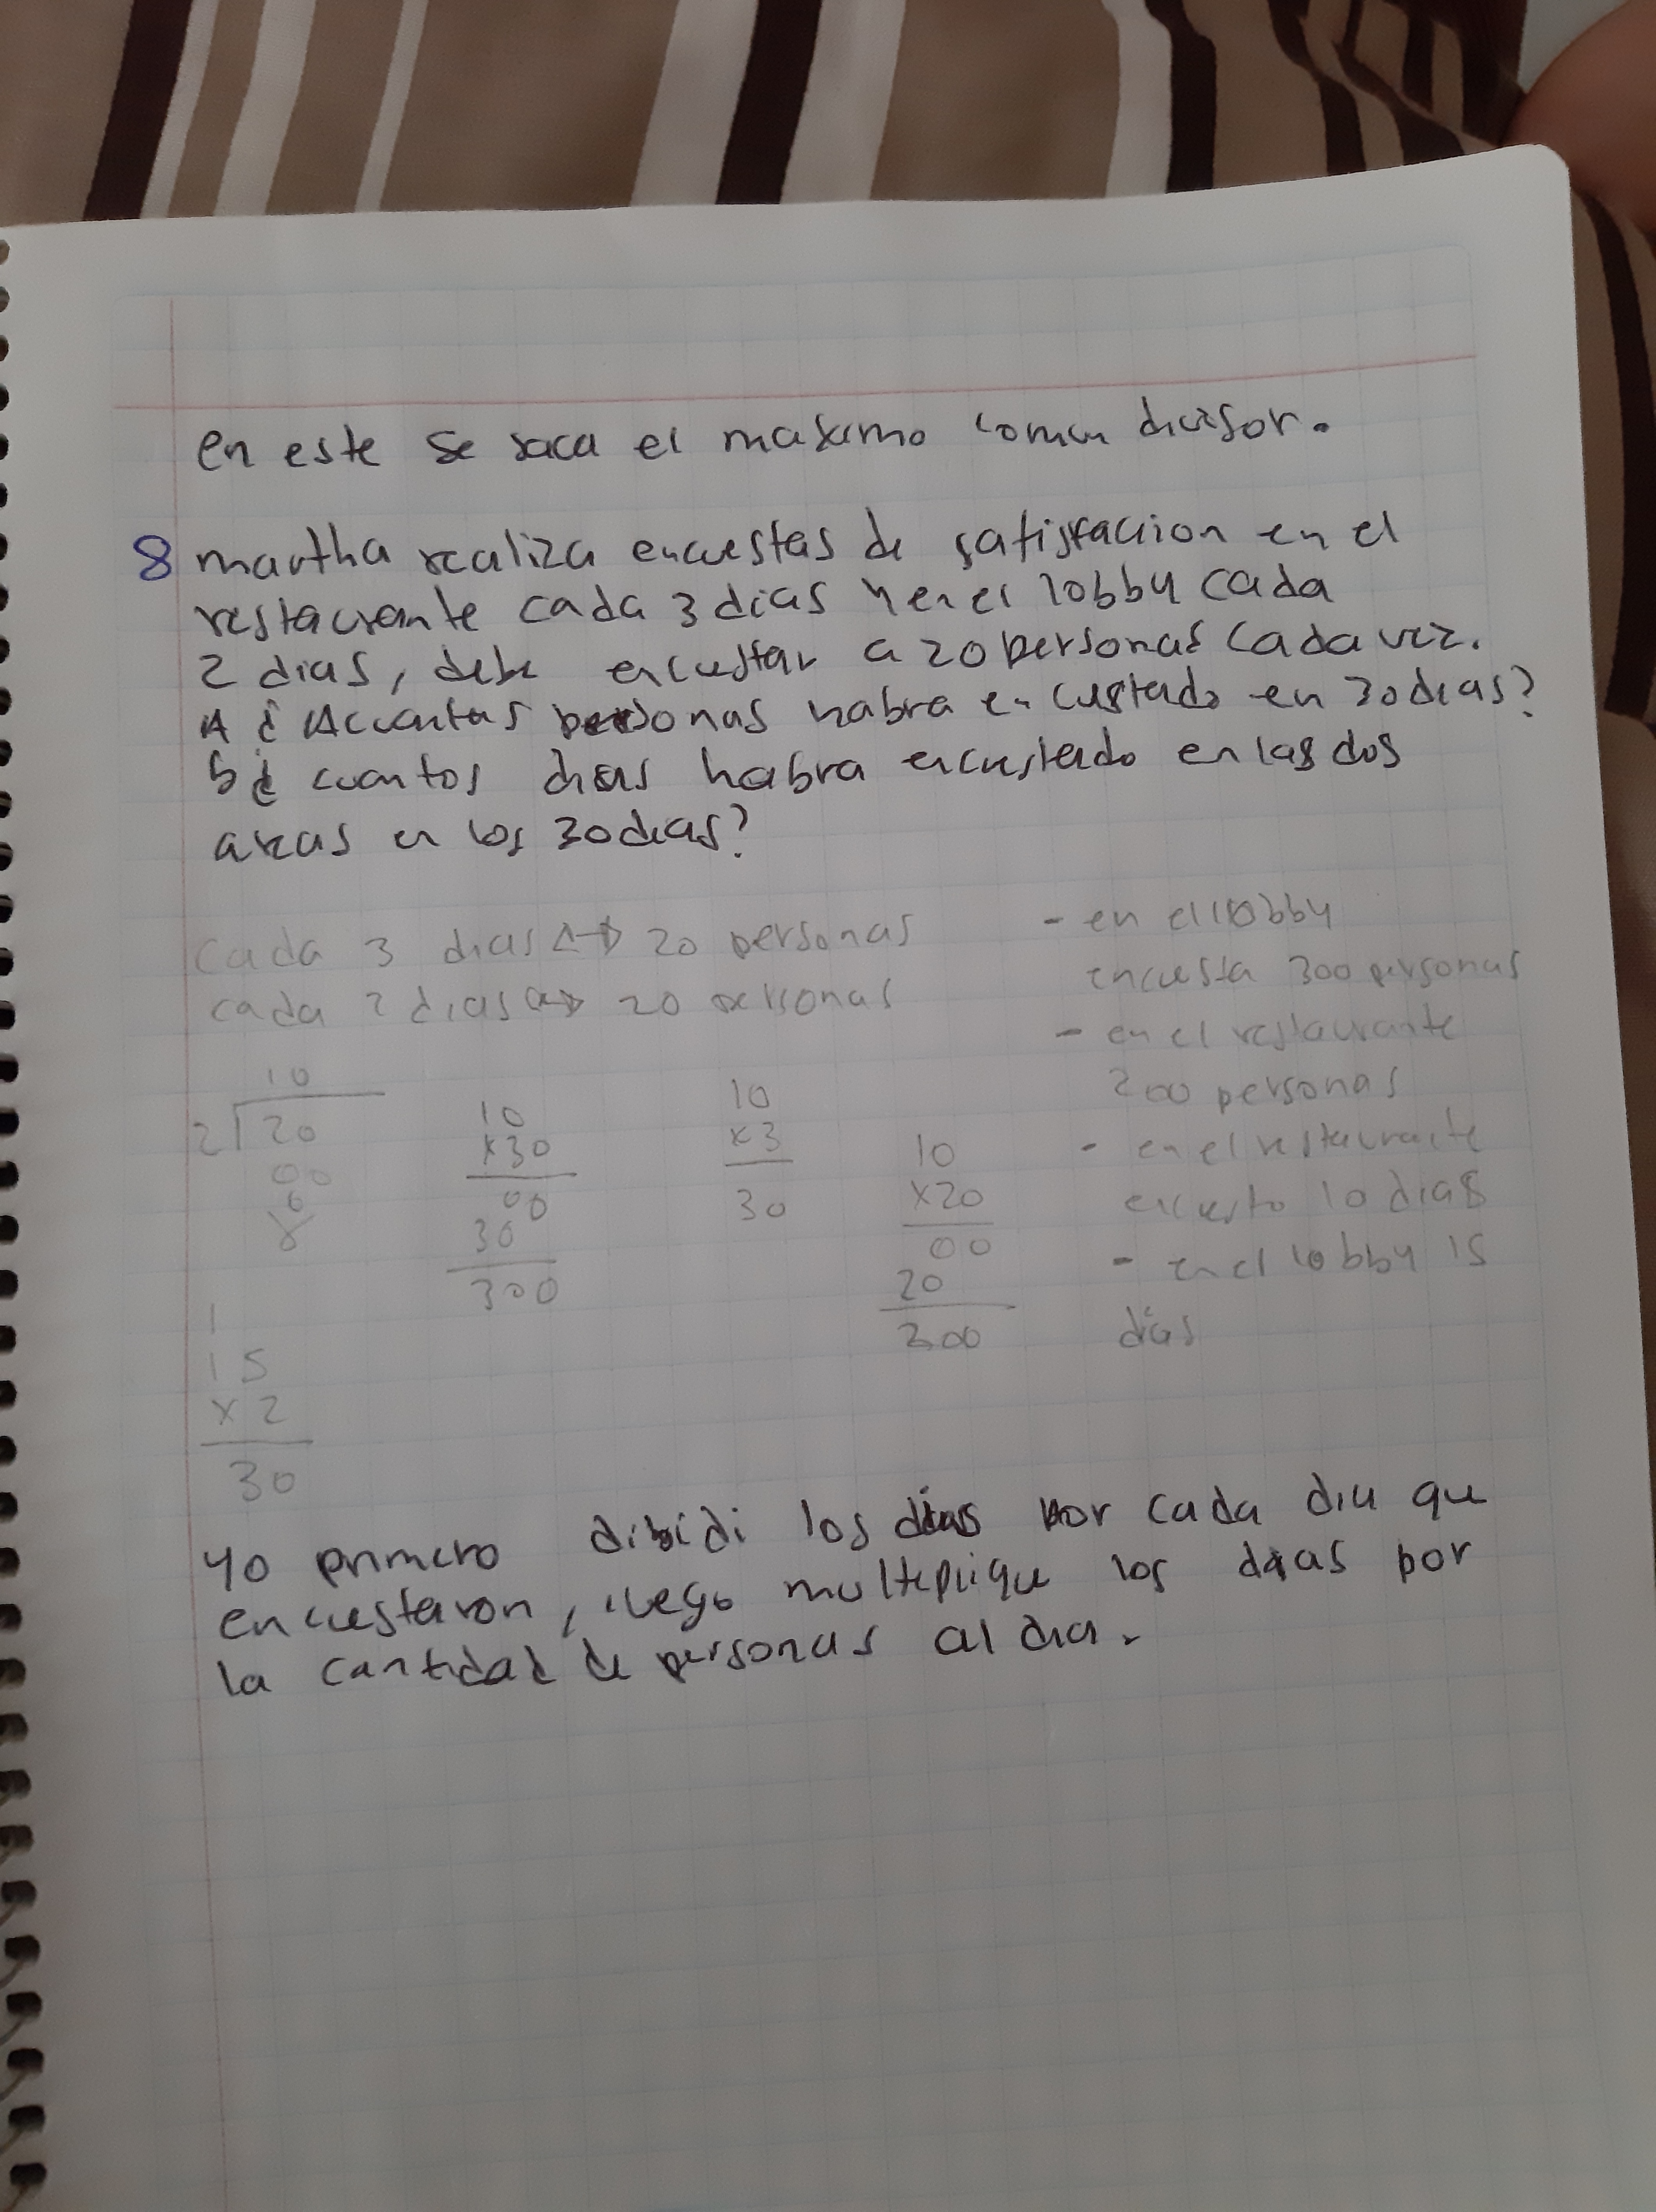 en este se saca el maximo comun divisor.
8 martha realiza encuestas de satisfacion en el
restaurante cada 3 dias y en el lobby cada
2 dias, debe encuestar a 20 personas cada vez.
A ¿ Acuantas personas habra encustado en 30 dias?
b ¿ cuantos dias habra encuestado en las dos
areas en los 30 dias?
cada 3 dias <-> 20 personas
cada 2 dias <-> 20 personas
10
2 20
00
0
10
x30
00
30
300
10
x3
30
10
x20
00
20
200
1
15
x2
30
- en el lobby
encuesta 300 personas
- en el restaurante
200 personas
- en el restaurante
encuesto 10 dias
- en el lobby 15
dias
yo primero dibidi los dias por cada dia que
encuestaron, luego multiplique los dias por
la cantidad de personas al dia.